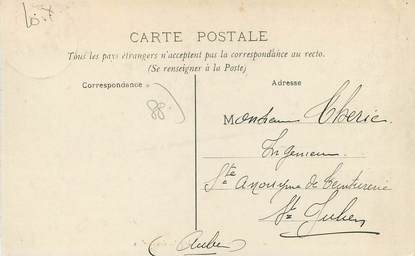 CARTE POSTALE
Tous les pays étrangers n'acceptent pas la correspondance au recto.
(Se renseigner à la Poste)
Correspondance
Adresse
88.
Monsieur Cherie
Ingenieur
Ste Anonyme de Teinturerie
St Julien
(Aube)